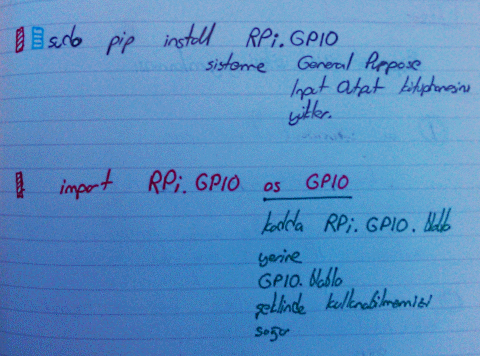 sudo pip install RPi.GPIO
sisteme General Purpose
Input Output kütüphanesini
yükler.
import RPi.GPIO as GPIO
kodda RPi.GPIO.blabla
yerine
GPIO.blabla
şeklinde kullanabilmemizi
sağlar